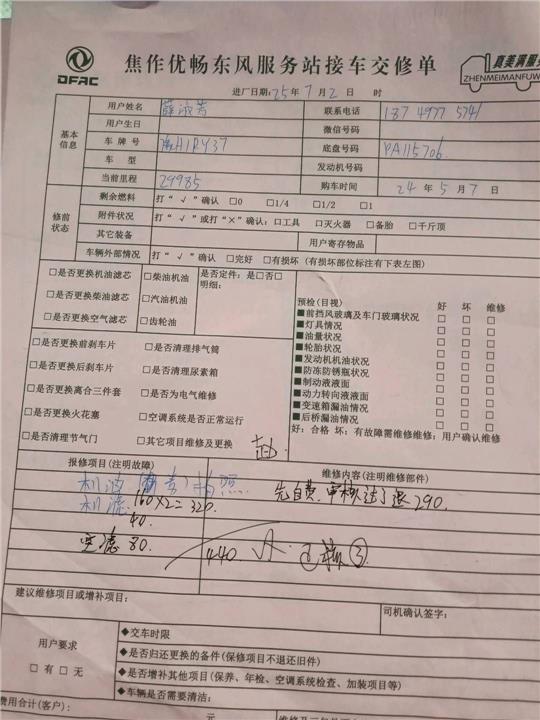 DFAC
焦作优畅东风服务站接车交修单
真美满服务
ZHENMEIMANFUW
进厂日期:25年7月2日 时
基本信息
用户姓名 薛 芳 联系电话 187 4977 5741
用户生日 微信号码
车 牌 号 豫H1RY37 底盘号码 PA115706
车 型 发动机号码
当前里程 29985 购车时间 24年5月7日
修前状态
剩余燃料 打“√”确认 □0 □1/4 □1/2 □1
附件状况 打“√”或打“×”确认:□工具 □灭火器 □备胎 □千斤顶
其它装备 用户寄存物品
车辆外部情况 打“√”确认 □完好 □有损坏(有损坏部位标注有下表左图)
□是否更换机油滤芯 □柴油机油 是否定件:是□否□
明细:
□是否更换柴油滤芯 □汽油机油
□是否更换空气滤芯 □齿轮油
□是否更换前刹车片 □是否清理排气筒
□是否更换后刹车片 □是否清理尿素箱
□是否更换离合三件套 □是否为电气维修
□是否更换火花塞 □空调系统是否正常运行
□是否清理节气门 □其它项目维修及更换
预检(目视) 好 坏 维修
■前挡风玻璃及车门玻璃状况 □ □ □
■灯具情况 □ □ □
■油量状况 □ □ □
■轮胎状况 □ □ □
■发动机机油状况 □ □ □
■防冻防锈瓶状况 □ □ □
■制动液液面 □ □ □
■动力转向液液面 □ □ □
■变速箱漏油情况 □ □ □
■后桥漏油情况 □ □ □
好:合格 坏:有故障需维修维修:用户确认维修
报修项目(注明故障) 维修内容(注明维修部件)
机油 拍照 先自费,审核过了退290.
机滤 160×2=320.
40.
空滤 80. 440.
③
建议维修项目或增补项目:
司机确认签字:
用户要求
□有 □无
◆交车时限
◆是否归还更换的备件(保修项目不退还旧件)
◆是否增补其他项目(保养、年检、空调系统检查、加装项目等)
◆车辆是否需要清洁:
费用合计(客户): 元